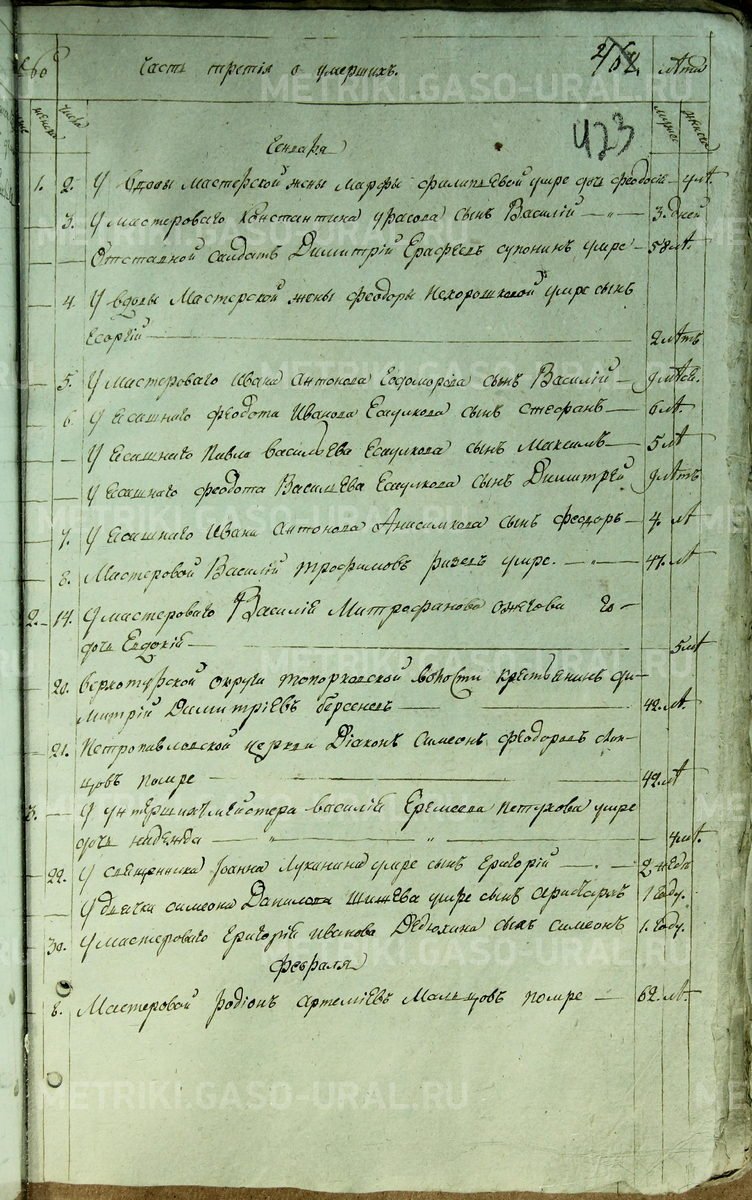 Часть третія о умершихъ. лѣта
числа
423
Генваря
1. 2. У вдовы Мастерской жены Марфы Филипьевой умре дочь Феодосія 4 лѣт.
3. У мастероваго Константина Урасова сынъ Василій 3. дней
Отставной салдатъ Димитрій Ерафѣевъ супонинъ умре 58 лѣ.
4. У вдовы Мастерской жены Феодоры Нехорошковой умре сынъ
Георгій 2 лѣтъ
5. У Мастероваго Ивана Антонова сынъ Василій 9 мѣс.
6. У ясашнаго Феодота Иванова Есаулкова сынъ Стефанъ 6 лѣт.
У ясашнаго Павла Васильева Есаулкова сынъ Максимъ 5 лѣт
У ясашнаго Феодота Васильева Есаулкова сынъ Димитрей 9 лѣтъ
7. У ясашнаго Ивана Антонова Анисимкова сынъ Феодоръ 4. лѣт
8. Мастеровой Василій Трофимовъ умре. 47. лѣт
2. 14. У мастероваго Василія Митрофанова Ожегова
дочь Евдокія 5 лѣт
20. Верхотурской округи Топорковской волости крестьянинъ Ди-
митрій Димитріевъ берсеневъ 42. лѣт.
21. Петропавловской церкви Діаконъ Симеонъ Феодоровъ
помре 42. лѣт
3. У унтершихтмейстера Василія Еремеева Петухова умре
дочь надежда 4 лѣт.
22. У священника Іоанна Лукинина умре сынъ Григорій 2 недѣ.
У дьячка Симеона Данилова умре сынъ 1 году.
30. У мастероваго Григорія Иванова Дедюхина сынъ Симеонъ 1. году.
Февраля
8. Мастеровой Родіонъ Артеміевъ Мальцовъ помре 62. лѣт.
METRIKI.GASO-URAL.RU